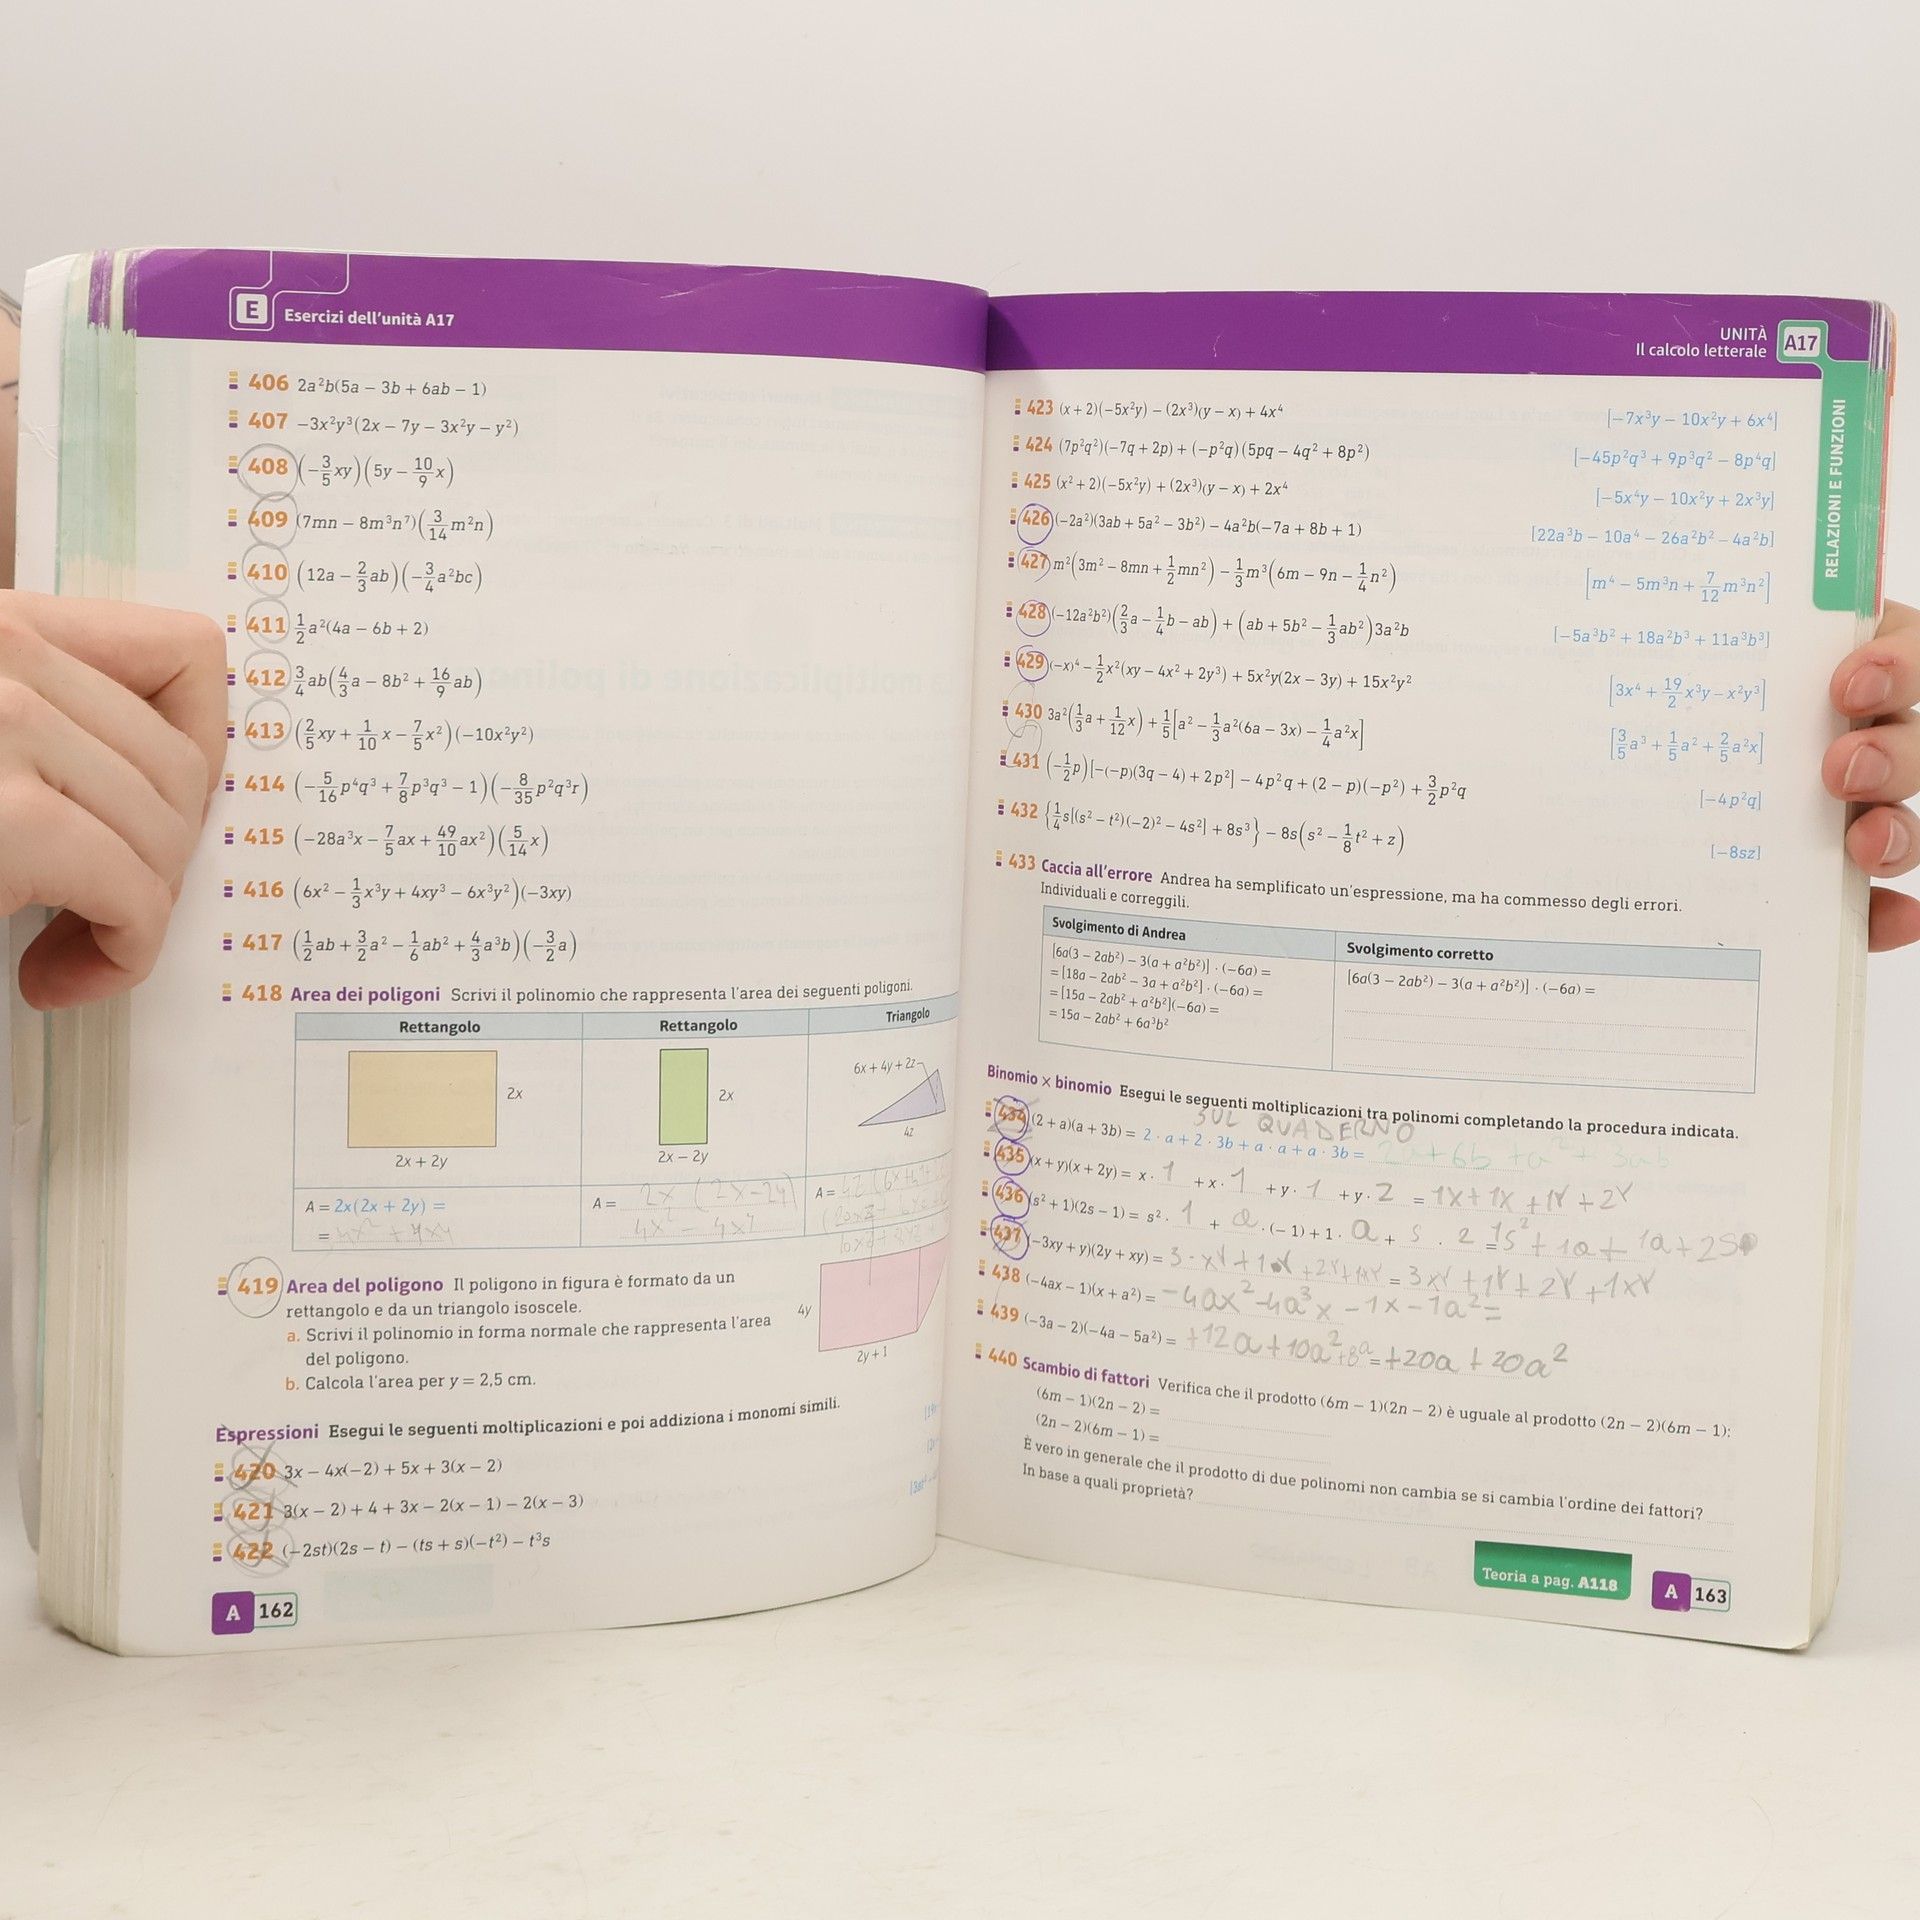 E Esercizi dell'unità A17
406 2a²b(5a − 3b + 6ab − 1)
407 −3x²y³(2x − 7y − 3x²y − y²)
408 (−3/5 xy)(5y − 10/9 x)
409 (7mn − 8m³n⁷)(3/14 m²n)
410 (12a − 2/3 ab)(−3/4 a²bc)
411 1/2 a²(4a − 6b + 2)
412 3/4 ab(4/3 a − 8b² + 16/9 ab)
413 (2/5 xy + 1/10 x − 7/5 x²)(−10x²y²)
414 (−5/16 p⁴q³ + 7/8 p³q³ − 1)(−8/35 p²q³r)
415 (−28a³x − 7/5 ax + 49/10 ax²)(5/14 x)
416 (6x² − 1/3 x³y + 4xy³ − 6x³y²)(−3xy)
417 (1/2 ab + 3/2 a² − 1/6 ab² + 4/3 a³b)(−3/2 a)
418 Area dei poligoni Scrivi il polinomio che rappresenta l'area dei seguenti poligoni.
Rettangolo Rettangolo Triangolo
2x 2x 6x + 4y + 2z
2x + 2y 2x − 2y 4z
A = 2x(2x + 2y) = A = 2x (2x−2y) A =
= 4x² + 4xy 4x² − 4xy
419 Area del poligono Il poligono in figura è formato da un
rettangolo e da un triangolo isoscele.
a. Scrivi il polinomio in forma normale che rappresenta l'area
del poligono.
b. Calcola l'area per y = 2,5 cm.
4y
2y + 1
Espressioni Esegui le seguenti moltiplicazioni e poi addiziona i monomi simili.
420 3x − 4x(−2) + 5x + 3(x − 2)
421 3(x − 2) + 4 + 3x − 2(x − 1) − 2(x − 3)
422 (−2st)(2s − t) − (ts + s)(−t²) − t³s
A 162
UNITÀ
Il calcolo letterale A17
RELAZIONI E FUNZIONI
423 (x + 2)(−5x²y) − (2x³)(y − x) + 4x⁴ [−7x³y − 10x²y + 6x⁴]
424 (7p²q²)(−7q + 2p) + (−p²q)(5pq − 4q² + 8p²) [−45p²q³ + 9p³q² − 8p⁴q]
425 (x² + 2)(−5x²y) + (2x³)(y − x) + 2x⁴ [−5x⁴y − 10x²y + 2x³y]
426 (−2a²)(3ab + 5a² − 3b²) − 4a²b(−7a + 8b + 1) [22a³b − 10a⁴ − 26a²b² − 4a²b]
427 m²(3m² − 8mn + 1/2 mn²) − 1/3 m³(6m − 9n − 1/4 n²) [m⁴ − 5m³n + 7/12 m³n²]
428 (−12a²b²)(2/3 a − 1/4 b − ab) + (ab + 5b² − 1/3 ab²)3a²b [−5a³b² + 18a²b³ + 11a³b³]
429 (−x)⁴ − 1/2 x²(xy − 4x² + 2y³) + 5x²y(2x − 3y) + 15x²y² [3x⁴ + 19/2 x³y − x²y³]
430 3a²(1/3 a + 1/12 x) + 1/5 [a² − 1/3 a²(6a − 3x) − 1/4 a²x] [3/5 a³ + 1/5 a² + 2/5 a²x]
431 (−1/2 p)[−(−p)(3q − 4) + 2p²] − 4p²q + (2 − p)(−p²) + 3/2 p²q [−4p²q]
432 {1/4 s[(s² − t²)(−2)² − 4s²] + 8s³} − 8s(s² − 1/8 t² + z) [−8sz]
433 Caccia all'errore Andrea ha semplificato un'espressione, ma ha commesso degli errori.
Individuali e correggili.
Svolgimento di Andrea Svolgimento corretto
[6a(3 − 2ab²) − 3(a + a²b²)] · (−6a) = [6a(3 − 2ab²) − 3(a + a²b²)] · (−6a) =
= [18a − 2ab² − 3a + a²b²] · (−6a) =
= [15a − 2ab² + a²b²](−6a) =
= 15a − 2ab² + 6a³b²
Binomio × binomio Esegui le seguenti moltiplicazioni tra polinomi completando la procedura indicata.
SUL QUADERNO
434 (2 + a)(a + 3b) = 2 · a + 2 · 3b + a · a + a · 3b = 2a + 6b + a² + 3ab
435 (x + y)(x + 2y) = x · 1 + x · 1 + y · 1 + y · 2 = 1x + 1x + 1y + 2y
436 (s² + 1)(2s − 1) = s² · 1 + a · (−1) + 1 · a + s · 2 = 1s² + 1a + 1a + 2s
437 (−3xy + y)(2y + xy) = = 3xy + 1y + 2y + 1xy
438 (−4ax − 1)(x + a²) = −4ax² −4a³x − 1x − 1a² =
439 (−3a − 2)(−4a − 5a²) = +12a + 10a² +8a = +20a + 20a²
440 Scambio di fattori Verifica che il prodotto (6m − 1)(2n − 2) è uguale al prodotto (2n − 2)(6m − 1):
(6m − 1)(2n − 2) =
(2n − 2)(6m − 1) =
È vero in generale che il prodotto di due polinomi non cambia se si cambia l'ordine dei fattori?
In base a quali proprietà?
Teoria a pag. A118
A 163